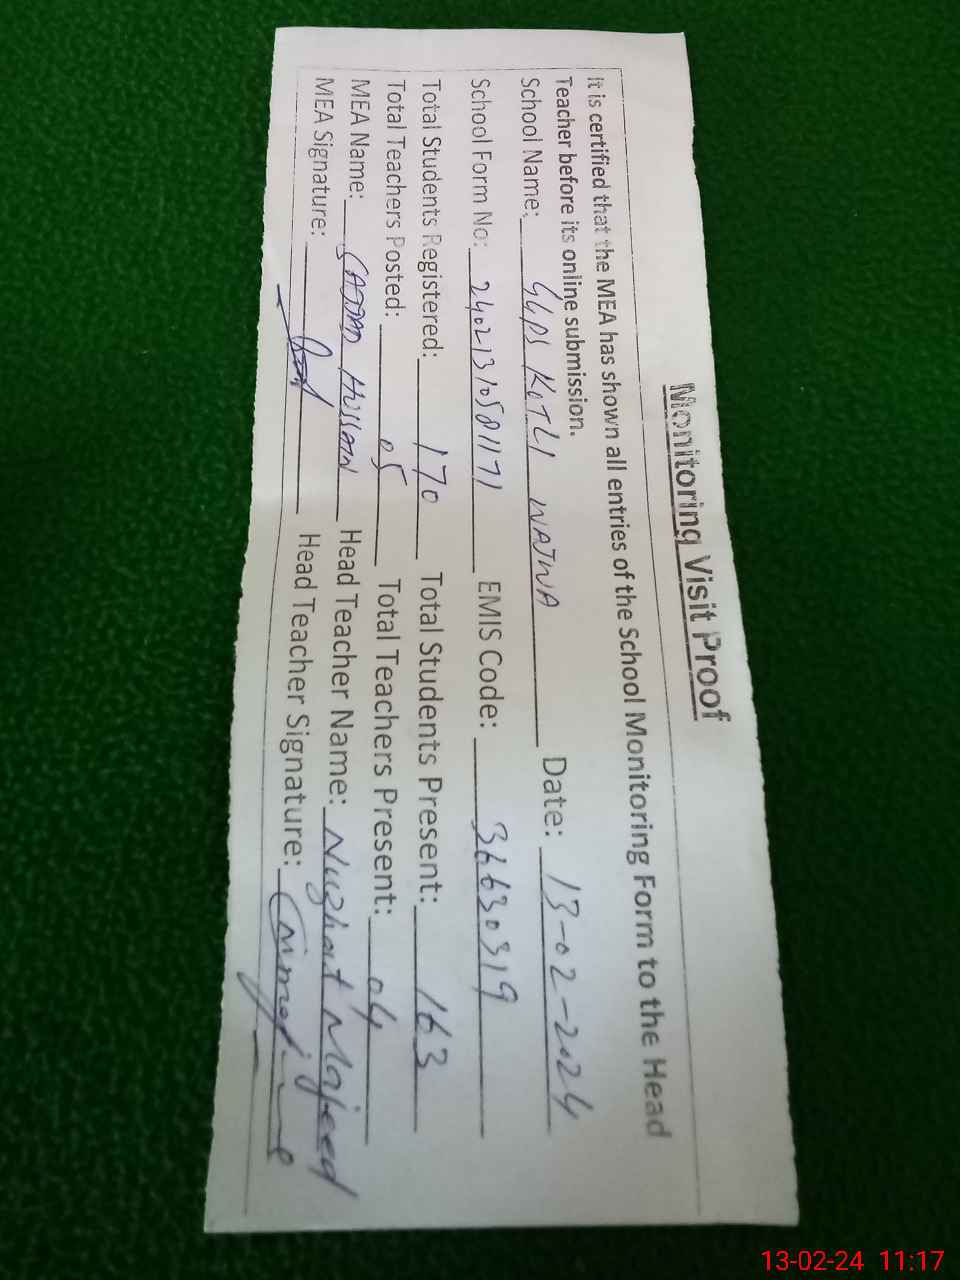 Monitoring Visit Proof
It is certified that the MEA has shown all entries of the School Monitoring Form to the Head
Teacher before its online submission.
School Name: GGPS KOTLI WAJWA Date: 13-02-2024
School Form No: 24021310581171 EMIS Code: 36630319
Total Students Registered: 170 Total Students Present: 163
Total Teachers Posted: 05 Total Teachers Present: 04
MEA Name: SAJJAD HUSSAIN Head Teacher Name: Nuzhat Majeed
MEA Signature: Head Teacher Signature:
13-02-24 11:17